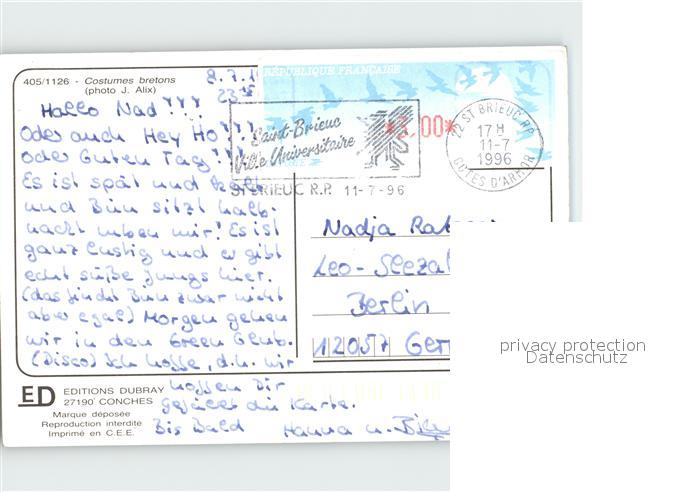 405/1126 - Costumes bretons
(photo J. Alix)
23
Hallo Nad!!!
Oder auch Hey Ho!!!
oder Guten Tag!!!
Es ist spät und
und Binn sitzt halb-
nackt neben mir! Es ist
ganz lustig und es gibt
echt süße Jungs hier.
(das findet Binn zwar nicht
aber egal) Morgen gehen
wir in den Green Club.
(Disco) Ich hoffe, d.h. wir
hoffen Dir
gefällt die Karte.
Bis Bald Hanna u.
ED EDITIONS DUBRAY
27190 CONCHES
Marque déposée
Reproduction interdite
Imprimé en C.E.E.
RÉPUBLIQUE FRANÇAISE
*3,00*
Saint-Brieuc
Ville Universitaire
ST BRIEUC R.P. 11-7-96
22 ST BRIEUC RP
17 H
11-7
1996
COTES D'ARMOR
Nadja
Leo-Sleza
Berlin
12057 Ger
privacy protection
Datenschutz